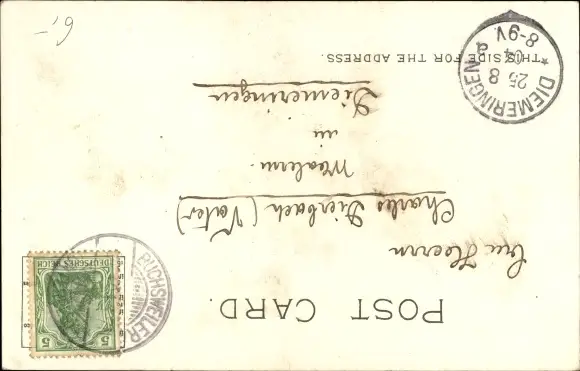 POST CARD.
DEUTSCHES REICH
5
5
BUCHSWEILER
Herrn
Charles Dierbach (Vater)
in
Diemeringen
THIS SIDE FOR THE ADDRESS.
* DIEMERINGEN *
25 8
04
8-9V
6,-